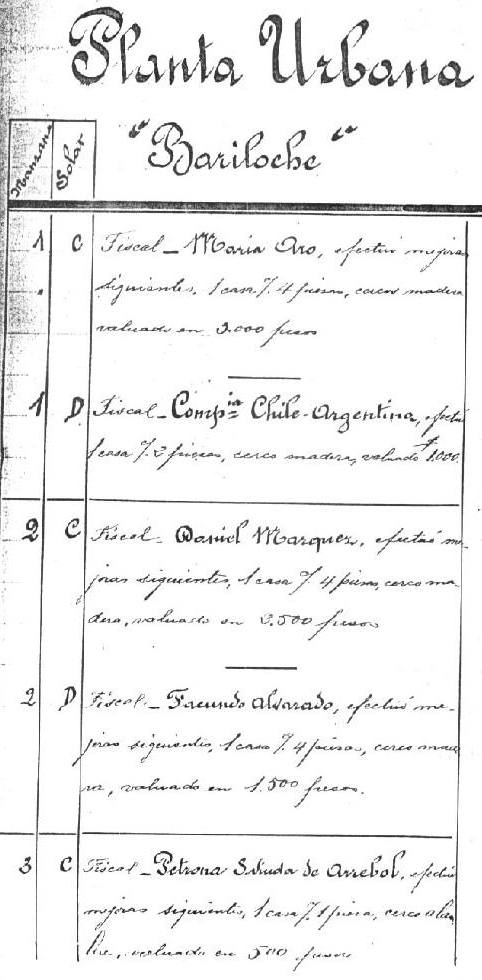 Planta Urbana
"Bariloche"
Manzana Solar
1 C Fiscal _ Maria Aro, efectuó mejoras
siguientes, 1 casa 7. 4 piesas, cerco madera
valuado en 3.000 pesos
1 D Fiscal _ Comp.ia Chile-Argentina, efectuó
1 casa 7. 2 piesas, cerco madera, valuado $ 1.000.
2 C Fiscal _ Daniel Marquez, efectuó me-
joras siguientes, 1 casa 7. 4 piesas, cerco ma-
dera, valuado en 2.500 pesos
2 D Fiscal _ Facundo Alvarado, efectuó me-
joras siguientes, 1 casa 7. 4 piesas, cerco made
ra, valuado en 1.500 pesos.
3 C Fiscal _ Petrona S. Viuda de Arrebol, efectuó
mejoras siguientes, 1 casa 7. 1 piesa, cerco alam
bre, valuado en 500 pesos